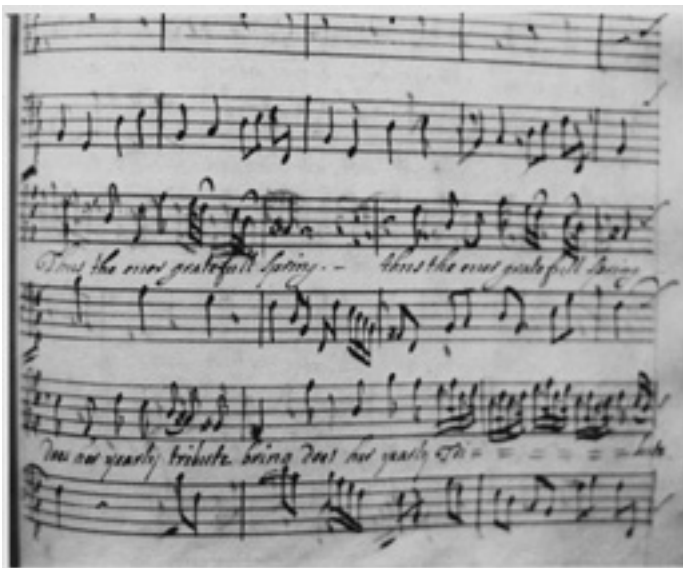 Thus the ever gratefull Spring. - thus the ever gratefull Spring
does her yearly tribute bring does her yearly Tri = = = = = = bute